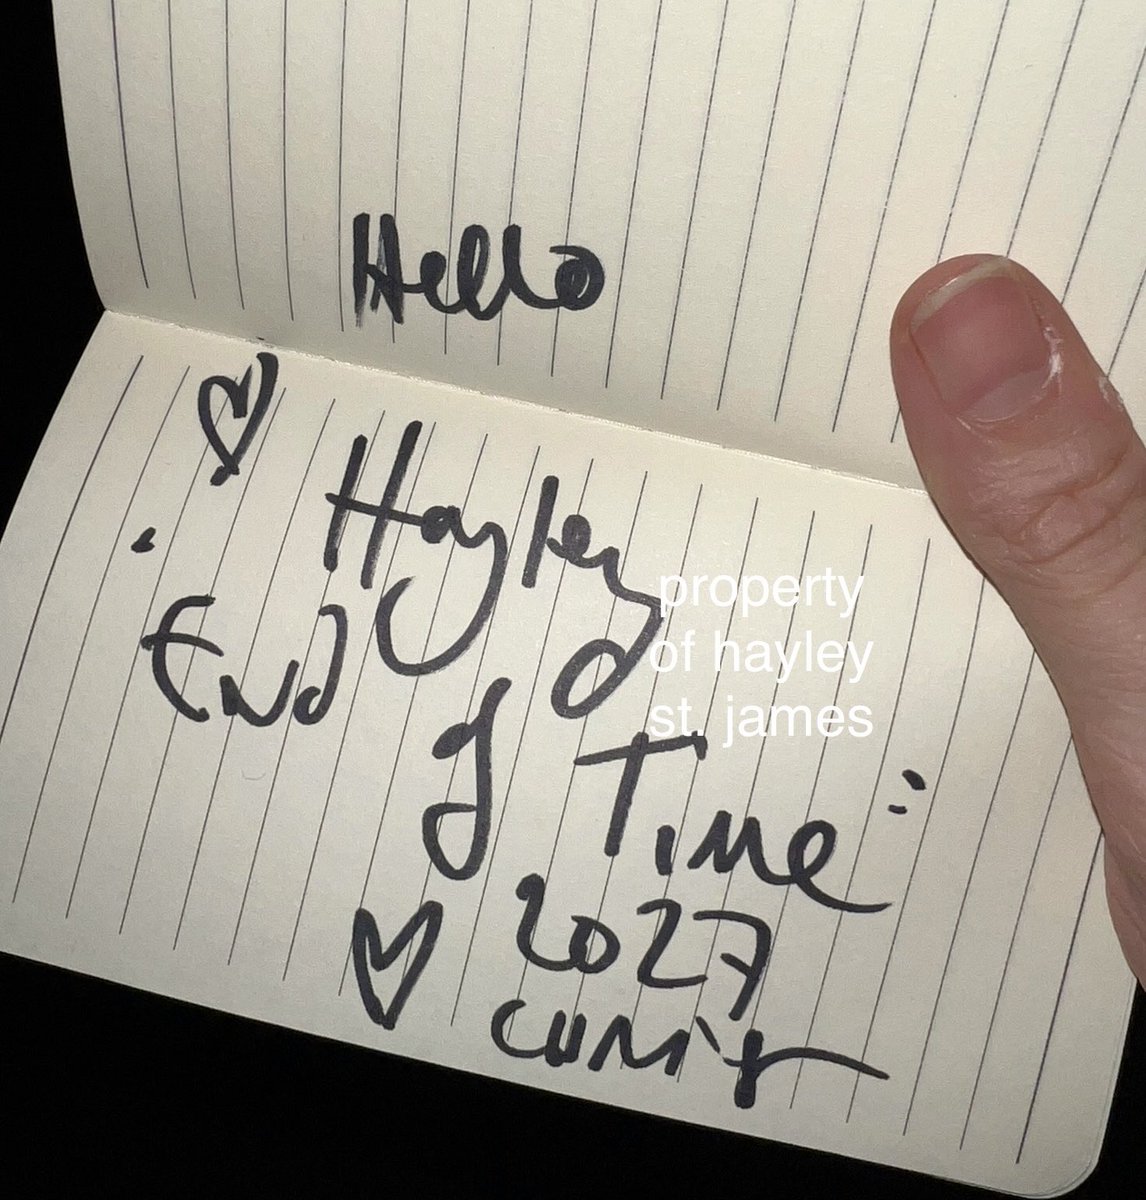 Hello
Hayley
"End of Time"
2027
property
of hayley
st. james